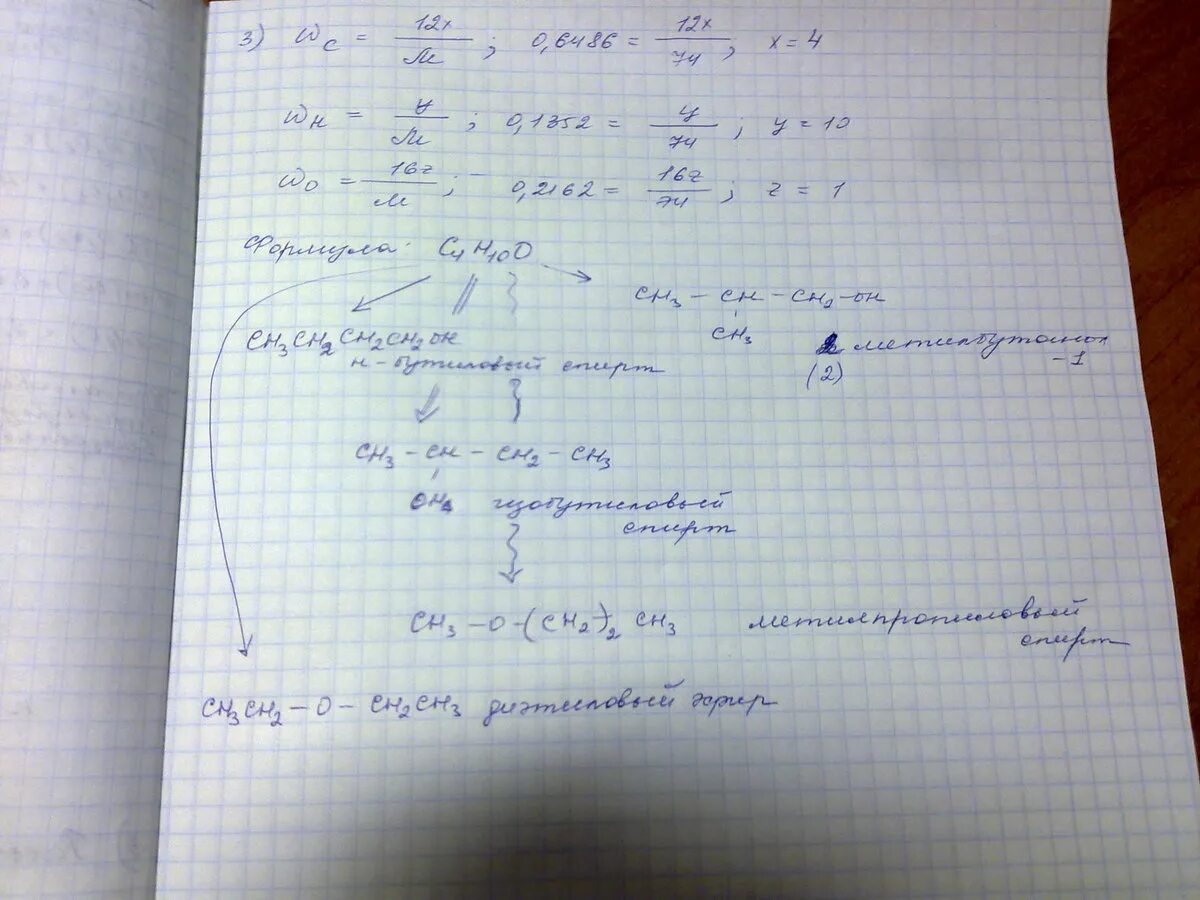 3) Wc = 12x/M ; 0,6486 = 12x/74 , x = 4
Wн = y/M ; 0,1352 = y/74 ; y = 10
Wo = 16z/M ; 0,2162 = 16z/74 ; z = 1
Формула: C4H10O
CH3 – CH – CH2 – OH
CH3
CH3CH2CH2CH2OH
2 метилбутанол
-1
(2)
н-бутиловый спирт
CH3 – CH – CH2 – CH3
OH изобутиловый
спирт
CH3 – O – (CH2)2 CH3 метилпропиловый
спирт
CH3CH2 – O – CH2CH3 диэтиловый эфир